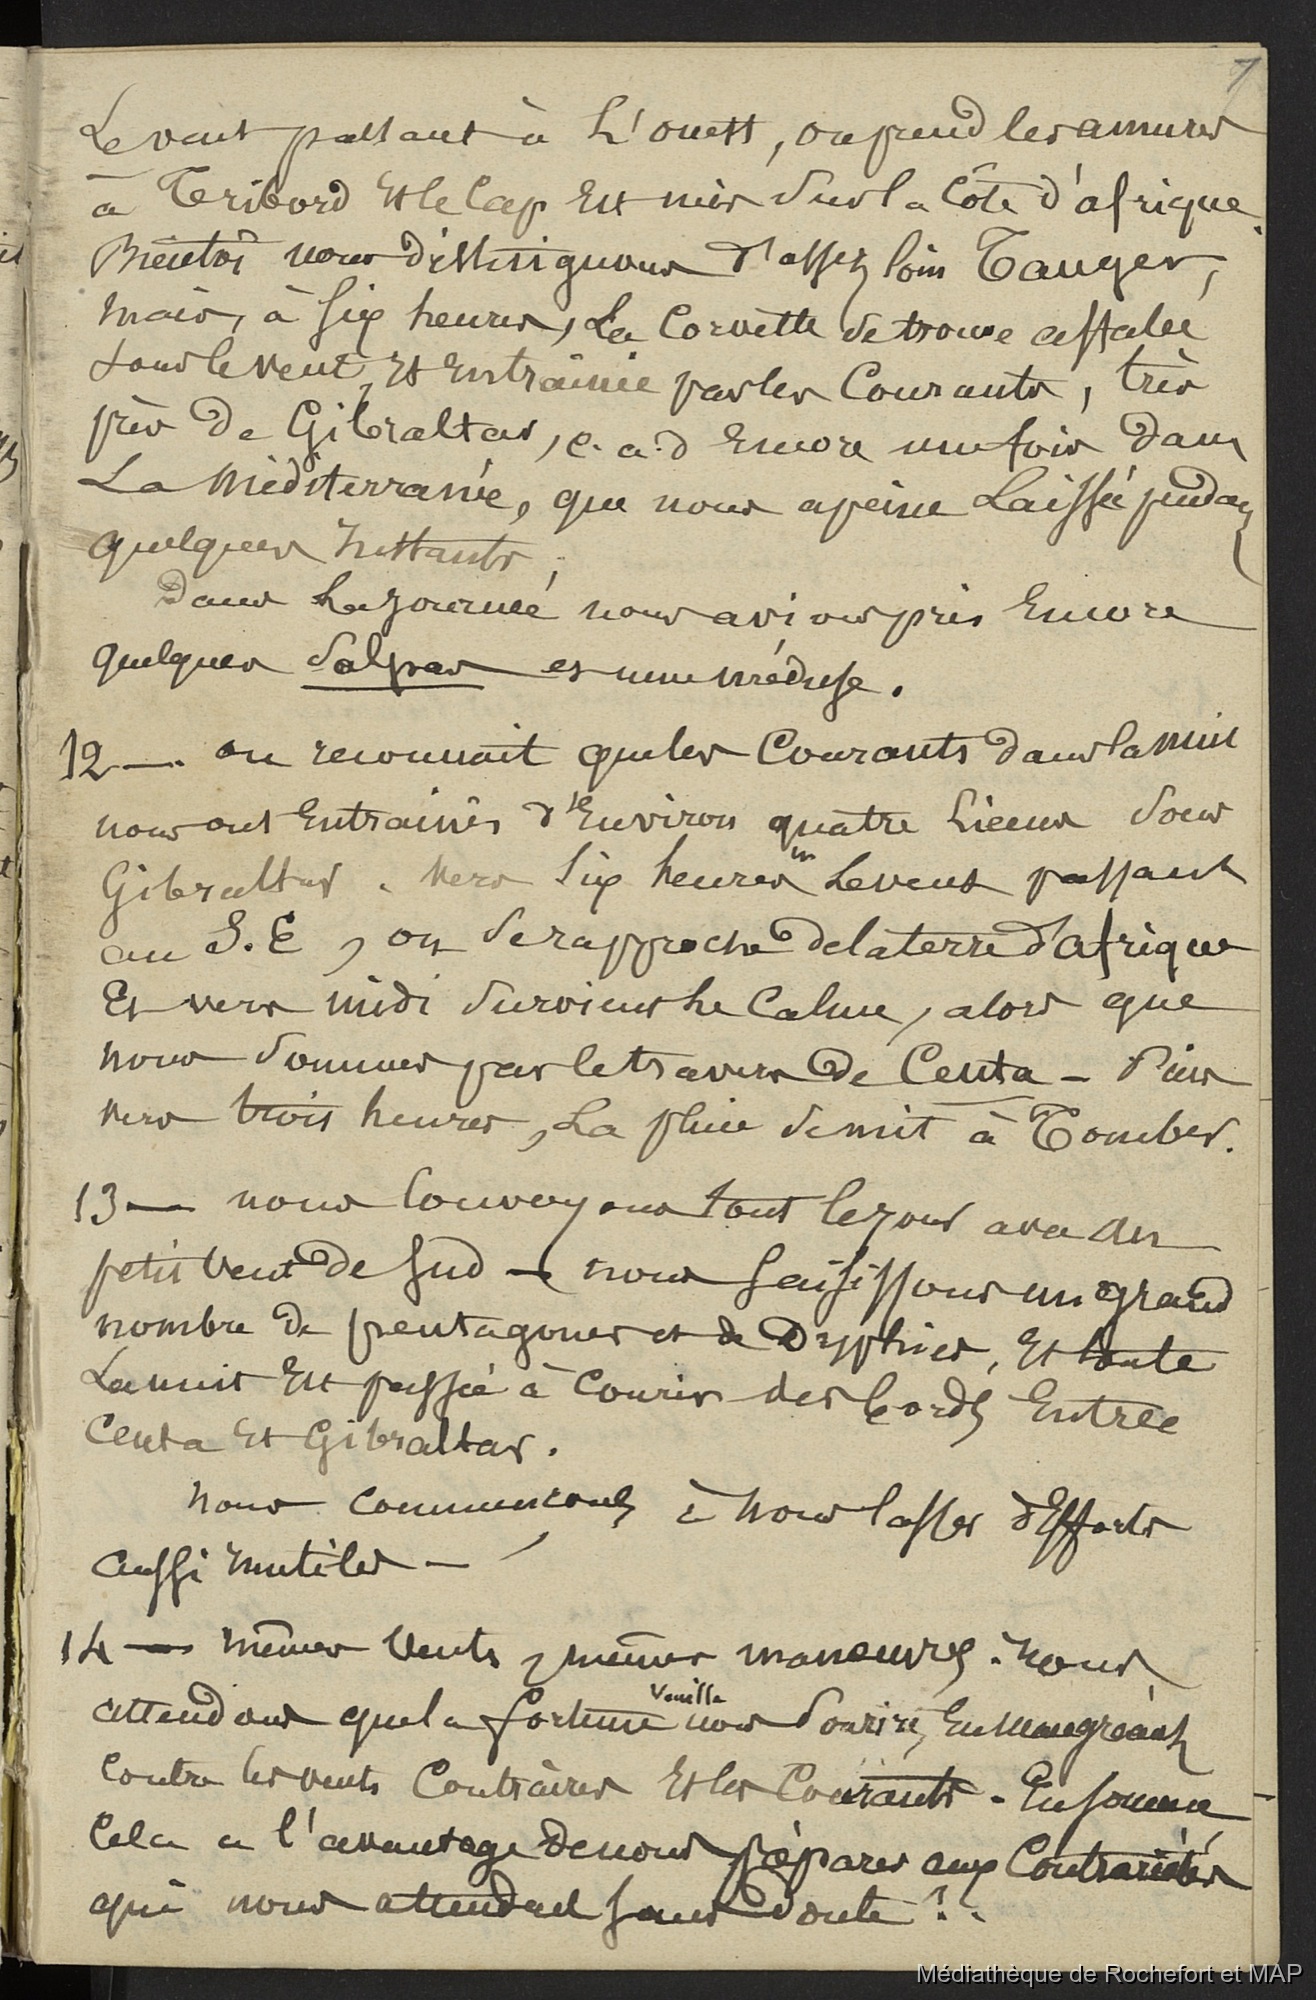 7
Le vent passant à L'ouest, on prend les amures
à Tribord Et le Cap Est mis sur la Côte d'afrique.
Bientôt nous distinguons d'assez loin Tanger,
mais, à six heures, La Corvette se trouve affalée
sous le vent, Et Entrainée par les Courants, très
près De Gibraltar, c.a.d Encore une fois dans
La Méditerranée, que nous apeine Laissée pendant
quelques Instants.
Dans La journée nous avions pris Encore
quelques Salpas et une méduse.
12 —. on reconnait que les Courants dans la nuit
nous ont Entrainés d'Environ quatre Lieues sous
Gibraltar. vers six heures m Le vent passant
au S.E, on se rapproche de la terre d'Afrique
Et vers midi survient Le Calme, alors que
nous sommes par le travers de Ceuta — Puis
vers trois heures, La pluie se mit à Tomber.
13 — nous louvoyons tout le jour avec un
petit vent de Sud — nous saisissons un grand
nombre de pentagones et de Dyphies, Et toute
La nuit Est passée à Courir des bords Entree
Ceuta Et Gibraltar.
nous commençons à nous lasser d'Efforts
aussi Inutiles —
14 — mêmes Vents, mêmes manoeuvres. nous
attendons que la fortune veuille nous sourire, En maugréant
contre les vents Contraires Et les Courants. En somme
Cela a l'avantage de nous préparer aux Contrariétés
qui nous attendent sans doute !.
Médiathèque de Rochefort et MAP